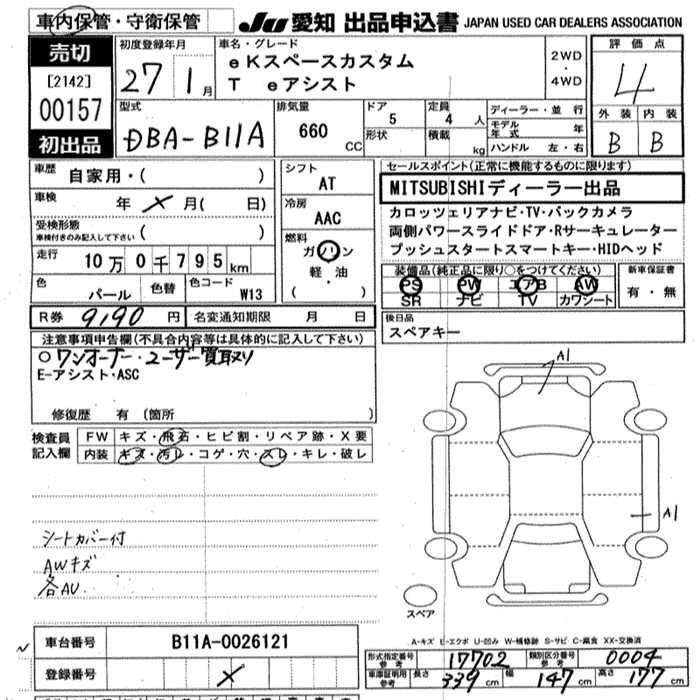 車内保管・守衛保管
JU 愛知 出品申込書 JAPAN USED CAR DEALERS ASSOCIATION
売切
[2142]
00157
初出品
初度登録年月
27 1月
車名・グレード
eKスペースカスタム
T eアシスト
2WD
・
4WD
評価点
4
外装 内装
B B
型式
DBA-B11A
排気量
660 CC
ドア
5
形状
定員
4 人
積載 kg
ディーラー・並行
モデル年式 年
ハンドル 左・右
車歴 自家用・( )
車検 年 × 月( 日)
受検形態
車検付きのみ記入して下さい ( )
走行 10万0千795km
色 パール 色替 色コード W13
シフト
AT
冷房
AAC
燃料
ガソリン
軽・油
( )
セールスポイント(正常に機能するものに限ります)
MITSUBISHIディーラー出品
カロッツェリアナビ・TV・バックカメラ
両側パワースライドドア・Rサーキュレーター
プッシュスタートスマートキー・HIDヘッド
装備品(純正品に限り○をつけてください)
PS PW エアB AW
SR ナビ TV カワシート
新車保証書
有・無
R券 9,190 円 名変通知期限 月 日
後日品
スペアキー
注意事項申告欄(不具合内容等は具体的に記入して下さい)
○ワンオーナー・ユーザー買取り
E-アシスト・ASC
修復歴 有 〔箇所 〕
検査員記入欄
FW キズ・飛石・ヒビ割・リペア跡・X要
内装 キズ・汚レ・コゲ・穴・スレ・キレ・破レ
シートカバー付
AWキズ
各AU
A1
A1
スペア
A-キズ E-エクボ U-凹み W-補修跡 S-サビ C-腐食 XX-交換済
車台番号 B11A-0026121
登録番号 ×
形式指定番号 参考 17702 類別区分番号 参考 0004
車庫証明用 参考 長さ 339 cm 幅 147 cm 高さ 177 cm